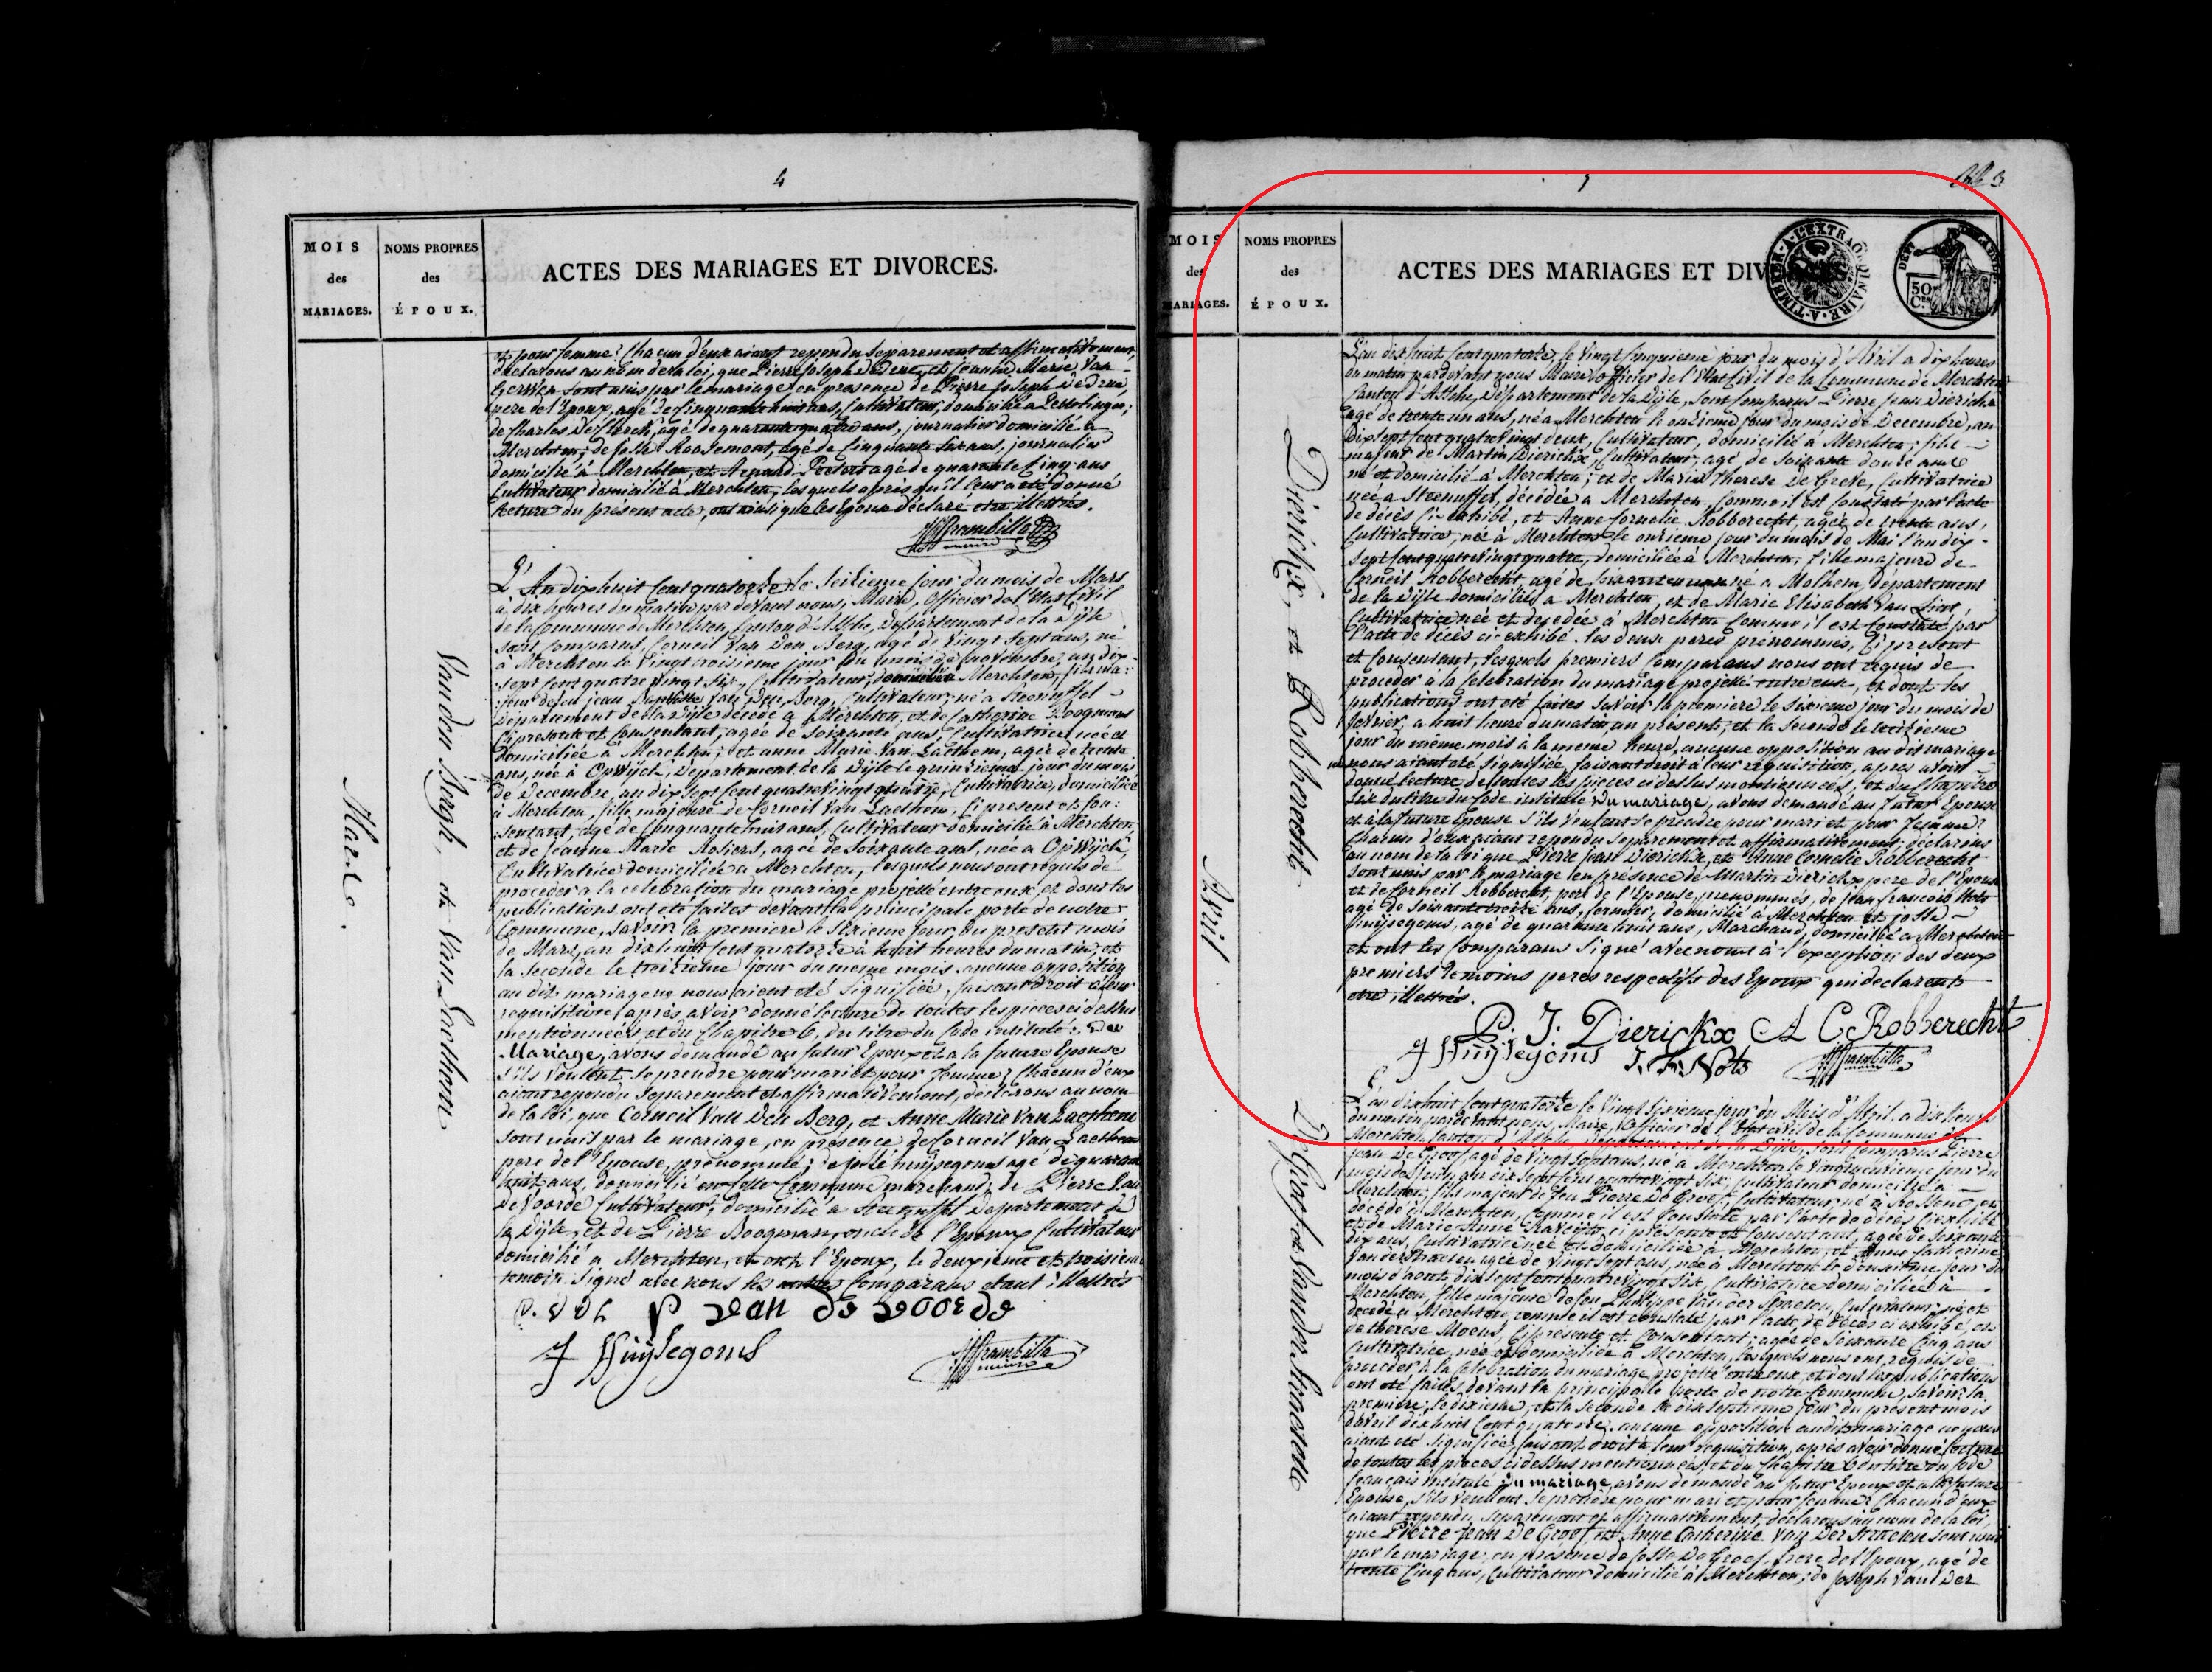 4
MOIS
des
MARIAGES.
NOMS PROPRES
des
ÉPOUX.
ACTES DES MARIAGES ET DIVORCES.
et pour femme? Chacun d'eux aiant repondu separement et affirmativement,
declarons au nom de la loi, que Pierre Joseph De Dene, et Jeanne Marie Van
sont unis par le mariage, en presence de Pierre Joseph De Dene,
pere de l'Epoux, agé de cinquante huit ans, Cultivateur, domicilié a
de Charles De Clerck, agé de quarante quatre ans, journalier domicilié à
Merchten, de Josse Roosemont, agé de cinquante six ans, journalier
domicilié à Merchten, et Arnaud agé de quarante cinq ans
Cultivateur domicilié à Merchten, lesquels après qu'il leur a été donné
lecture du présent acte, ont ainsi que les Epoux declaré etre illettrés.
maire
Mars.
Van den Bergh, et Van Laethem
L'An dixhuit cent quatorze le seizieme jour du mois de Mars
à dix heures du matin par devant nous, Maire, Officier de l'Etat Civil
de la Commune de Merchten, Canton d'Assche, Departement de la Dyle
sont comparus, Corneil Van Den Berg, agé de vingt sept ans, né
à Merchten le vingt troisieme jour du mois de Novembre, an dix-
sept cent quatre vingt six, Cultivateur, domicilié à Merchten, fils ma:
jeur de feu jean Baptiste Van Den Berg, Cultivateur, né a Steenuffel
Departement de la Dyle decédé a Merchten, et de Catherine Boogmans
Ci presente et consentant, agée de soixante ans, Cultivatrice née et
domiciliée à Merchten; et anne Marie Van Laethem, agée de trente
ans, née à Opwyck, Departement de la Dyle le quinzieme jour du mois
de Decembre, an dix sept cent quatre vingt quatre, Cultivatrice, domiciliée
à Merchten, fille majeure de Corneil Van Laethem, Ci present et con:
sentant, agé de cinquante huit ans, Cultivateur domicilié à Merchten,
et de jeanne Marie Rosiers, agée de soixante ans, née a Opwyck,
Cultivatrice domiciliée a Merchten, lesquels nous ont requis de
proceder a la celebration du mariage projetté entre eux, et dont les
publications ont été faites devant la principale porte de notre
Commune, Savoir la premiere le sixieme jour du present mois
de Mars, an dixhuit cent quatorze à huit heures du matin, et
la seconde le treizieme jour du meme mois. aucune opposition
au dit mariage ne nous aient eté signifiée, faisant droit a leur
requisition, après avoir donné lecture de toutes les pieces ci dessus
mentionnées, et du Chapitre 6, du titre du Code intitulé: Du
Mariage, avons demandé au futur Epoux et a la future Epouse
s'ils veulent se prendre pour mari et pour femme? Chacun d'eux
aiant repondu separement et affirmativement, declarons au nom
de la loi, que Corneil Van Den Berg, et Anne Marie Van Laethem
sont unis par le mariage, en présence de Corneil Van Laethem
pere de l'Epouse, prenommé; de josse huysegoms agé de quarante
huit ans, domicilié en cette Commune marchand; de Pierre Van
De Voorde Cultivateur, domicilié a Steenuffel Departement de
la Dyle, et de Pierre Boogmans, oncle de l'Epoux Cultivateur
domicilié a Merchten, et ont l'Epoux, le deuxieme et troisieme
temoin signé avec nous les Comparans etant illettrés
P van de voorde
J Huysegoms
maire
5
MOIS
des
MARIAGES.
NOMS PROPRES
des
ÉPOUX.
ACTES DES MARIAGES ET DIV
A TIMBRE A L'EXTRAORDINAIRE
50
Cen
Avril
Dierickx, et Robberecht
L'an dixhuit Cent quatorze, le vingt cinquieme jour du mois d'Avril a dix heures
du matin par devant nous Maire, officier de l'Etat Civil de la Commune de Merchten
Canton d'Assche, Département de la Dyle, sont comparus Pierre Jean Dierickx
agé de trente un ans, né a Merchten le onzieme jour du mois de Decembre, an
dix sept cent quatre vingt deux, Cultivateur, domicilié à Merchten; fils
majeur de Martin Dierickx, Cultivateur, agé de soixante douze ans
né et domicilié à Merchten; et de Marie Therese De Greve, Cultivatrice
née a Steenuffel, décédée a Merchten, Comme il est Constaté par l'acte
de décès ci exhibé, et Anne Cornelie Robberecht, agée de trente ans,
Cultivatrice, née à Merchten le onzieme jour du mois de Mai l'an dix-
sept cent quatre vingt quatre, domiciliée à Merchten, fille majeure de
Corneil Robberecht, agé de soixante né a Molhem, Département
de la Dyle domicilié a Merchten, et de Marie Elisabeth Van Lint,
Cultivatrice née et decedée à Merchten Comme il est Constaté par
l'acte de décès ci exhibé. les deux peres prénommés, Ci present
et Consentant, lesquels premiers Comparans nous ont requis de
proceder a la celebration du mariage projetté entre eux, et dont les
publications ont été faites savoir la premiere le sixieme jour du mois de
fevrier, a huit heures du matin, an présent; et la seconde le treizieme
jour du même mois à la meme heure, aucune opposition au dit mariage
ne nous aiant eté signifiée, faisant droit à leur requisition, apres avoir
donné lecture de toutes les pieces ci dessus mentionnées, et du Chapitre
six du titre du Code intitulé du mariage, avons demandé au futur Epoux
et à la future Epouse s'ils veulent se prendre pour mari et pour femme?
Chacun d'eux aiant repondu separement et affirmativement; declarons
au nom de la loi que Pierre jean Dierickx, et Anne Cornelie Robberecht
sont unis par le mariage en présence de Martin Dierickx pere de l'Epoux
et de Corneil Robberecht, pere de l'Epouse, prenommés, de jean francois Nots
agé de soixante ans, fermier, domicilié a Merchten et josse
Huysegoms, agé de quarante huit ans, Marchand, domicilié a Merchten
et ont les Comparans signé avec nous à l'exception des deux
premiers temoins peres respectifs des Epoux qui declarent
etre illettrés.
P. J. Dierickx A C Robberecht
J Huysegoms J. F. Nots
maire
De Groef et Van der Straeten
L'an dixhuit Cent quatorze le vingt sixieme jour du Mois d'Avril a dix heures
du matin par devant nous, Maire, Officier de l'Etat civil de la Commune de
Merchten, Canton d'Assche, Departement de la Dyle, sont comparus Pierre
jean De Groef, agé de vingt sept ans, né à Merchten le vingt neuvieme jour du
mois de juin, an dix sept cent quatre vingt six, Cultivateur domicilié à
Merchten, fils majeur de feu Pierre De Groef, Cultivateur, né à Rossem, et
décédé a Merchten, comme il est Constaté par l'acte de décès ci exhibé
et de Marie Anne ci présente et Consentant, agée de soixante
dix ans, Cultivatrice née et domiciliée à Merchten, et Anne Catherine
Van der Straeten agée de vingt sept ans, née à Merchten le deuxieme jour du
mois d'aout dix sept cent quatre vingt six, Cultivatrice domiciliée à
Merchten, fille majeure de feu Philippe Van der Straeten, Cultivateur né et
decedé à Merchten, comme il est constaté par l'acte de décès ci exhibé, et
de therese Moens, Ci présente et Consentant, agée de soixante cinq ans
Cultivatrice, née et domiciliée à Merchten, lesquels nous ont requis de
proceder à la celebration du mariage projetté entre eux, et dont les publications
ont été faites devant la principale porte de notre Commune, savoir: la
premiere, le dixieme, et la seconde le dix septieme jour du present mois
d'avril dix huit Cent quatorze, aucune opposition au dit mariage ne nous
aiant eté signifiée, faisant droit à leur requisition, après avoir donné lecture
de toutes les pieces ci dessus mentionnées, et du Chapitre 6 du titre du Code
français intitulé du mariage, avons demandé au futur Epoux et a la future
Epouse, s'ils veulent se prendre pour mari et pour femme? Chacun d'eux
aiant repondu separement et affirmativement, declarons au nom de la loi,
que Pierre Jean De Groef, et Anne Catherine Van Der Straeten sont unis
par le mariage, en présence de Josse De Groef, frere de l'Epoux, agé de
trente Cinq ans, Cultivateur domicilié à Merchten; de Joseph Van Der